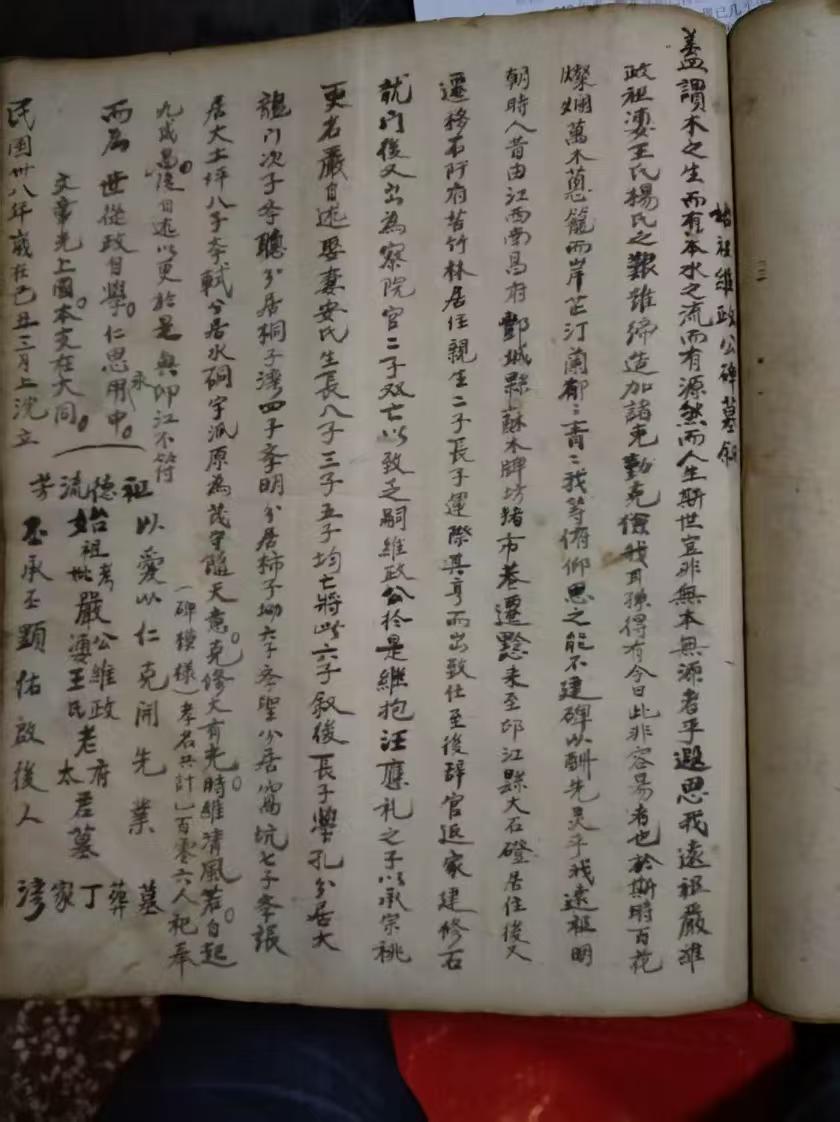 始祖維政公碑墓叙
蓋謂木之生而有本水之流而有源然而人生斯世豈非無本無源者乎遐思我遠祖嚴維
政祖婆王氏楊氏之艱難締造加諸克勤克儉我耳孫得有今日此非容易者也於斯時百花
燦爛萬木蔥籠而岸芷汀蘭郁〻青〻我等俯仰思之能不建碑以酬先灵乎我遠祖明
朝時人昔由江西南昌府酆城縣蘇木牌坊猪市巷遷黔来至邛江縣大石磴居住後又
遷移石阡府苦竹林居住親生二子長子運際其亨而出致仕至後辞官返家建修石
龍門後又出為察院官二子双亡以致乏嗣維政公於是継抱汪應礼之子以承宗祧
更名嚴自述娶妻安氏生長八子三子五子均亡將此六子叙後長子學孔分居大
龍门次子孝聰分居桐子湾四子孝明分居柿子坳六子孝聖分居窩坑七子孝張
居大土坪八子孝軾分居水硐字派原為茂守隨天意克修大有光時維清風若自起
九成恩後自述以更於是與邛江不符
而為世從政自學仁思永用中
文章光上國本支在大同
(碑模樣)孝名共計一百零六人祀奉
祖德流芳
以愛以仁克開先業
始祖考妣嚴公維政老府君婆王氏太墓
丕承丕顕佑啟後人
墓葬丁家湾
民国卅八年歲在己丑三月上浣立